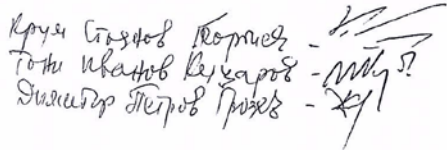 Крум Стоянов Георгиев -
Тони Иванов Качаров -
Димитър Петров Грозев -